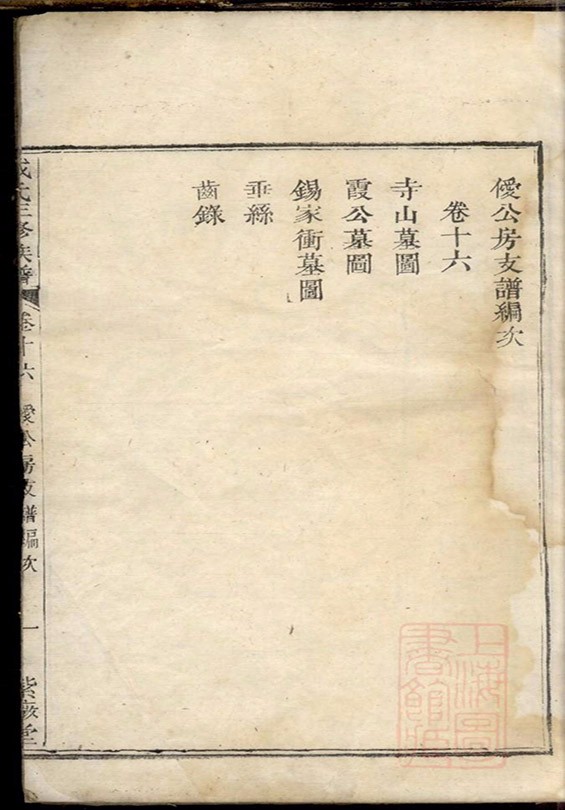 僾公房支譜編次
卷十六
寺山墓圖
霞公墓圖
錫家衝墓圖
垂絲
齒錄
氏三修族譜
卷十六
僾公房支譜編次
一
紫薇堂
上海圖書館藏